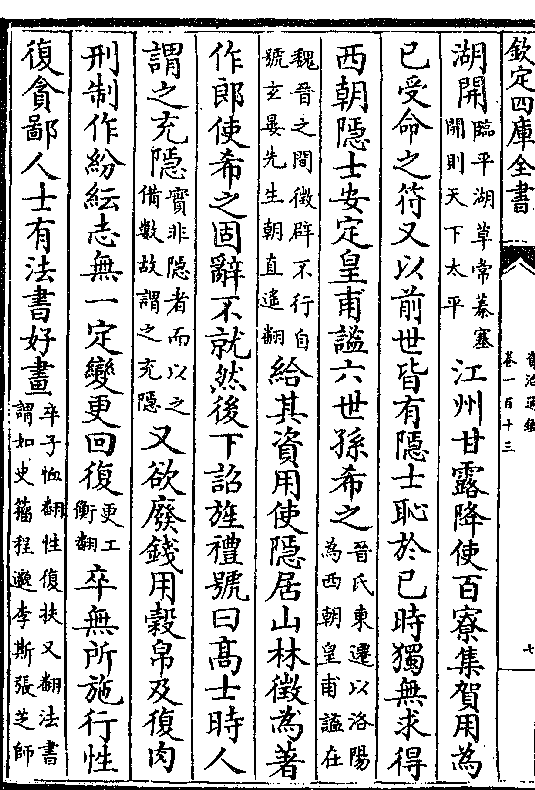 欽定四庫全書
資治通鑑
卷一百十三
七
湖開臨平湖草常蓁塞開則天下太平江州甘露降使百寮集賀用為
已受命之符又以前世皆有隱士恥於已時獨無求得
西朝隱士安定皇甫謐六世孫希之晉氏東遷以洛陽為西朝皇甫謐在
魏晉之間徵辟不行自號玄晏先生朝直遙翻給其資用使隱居山林徵為著
作郎使希之固辭不就然後下詔旌禮號曰高士時人
謂之充隱實非隱者而以之備數故謂之充隱又欲廢錢用穀帛及復肉
刑制作紛紜志無一定變更回復更工衡翻卒無所施行性
復貪鄙人士有法書好畫卒子恤翻性復扶又翻法書謂如史籀程邈李斯張芝師